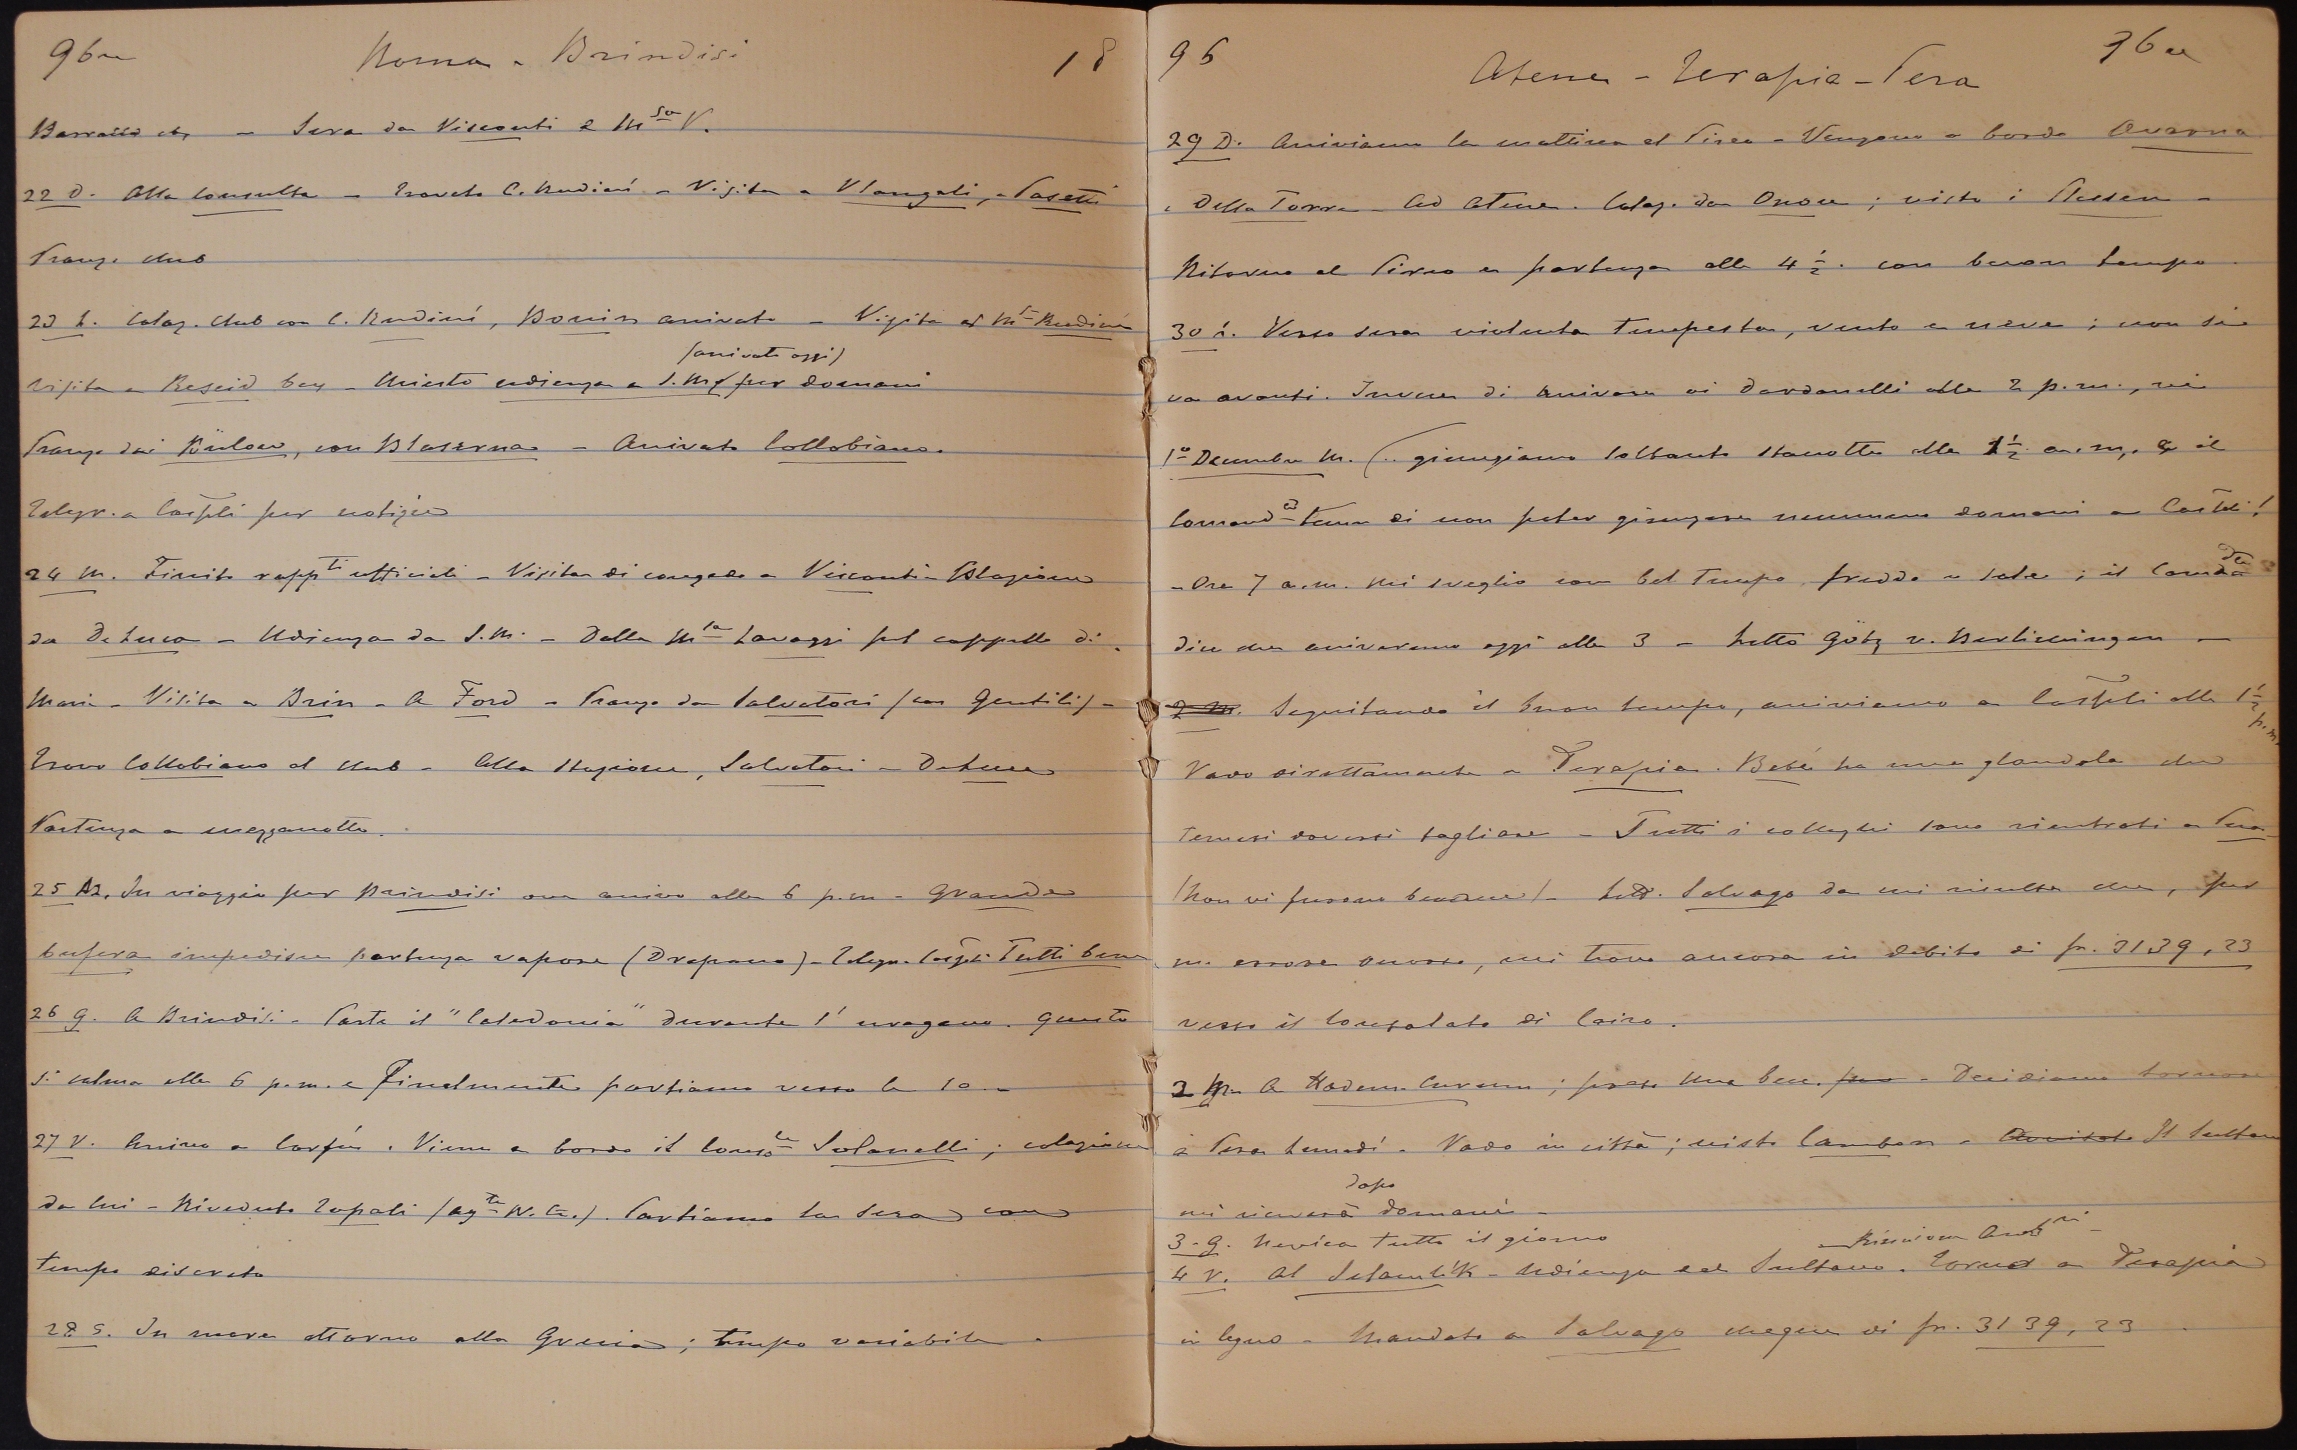 96
Roma - Brindisi
18
Barracco etc - Sera da Visconti e Msa V.
22 D. Alla Consulta - Trovato C. Rudinì - Visita a Vlangali, - Pasetti
Pranzo club
23 L. Colaz. club con C. Rudinì, Bonin arrivato - Visita a Msa Rudinì
(arrivato oggi)
visita a Rescid bey - Chiesto udienza a S.M. per domani
Pranzo dai Bülow, con Blaserna - Arrivato Collobiano.
Telegr. a Cospli per notizie
24 M. Finito rappti ufficiali - Visita di congedo a Visconti - Colazione
da De Luca - Udienza da S.M. - Dalla Msa Lavaggi pel cappello di
Maria - Visita a Brin - A Ford - Pranzo da Salvatori (con Gentili) -
Trovo Collobiano al club - Alla stazione, Salvatori - De Luca
Partenza a mezzanotte.
25 M. In viaggio per Brindisi ove arrivo alle 6 p.m. - Grande
bufera impedisce partenza vapore (Drepano) - Telegr. Cospli Tutti bene
26 G. A Brindisi - Parte il "Caledonia" durante l'uragano. Questo
si calma alle 6 p.m. e finalmente partiamo verso le 10 -
27 V. Arrivo a Corfù. Viene a bordo il Console Solanelli; colazione
da lui - Riveduto Zupali (agte N. G.). Partiamo la sera con
tempo discreto
28 S. In mare attorno alla Grecia; tempo variabile -
96
Atene - Terapia - Pera
29 D. Arriviamo la mattina al Pireo - Vengono a bordo Avarna
e Della Torre - Ad Atene. Colaz. da Onou; visto i Plessen -
Ritorno al Pireo e partenza alle 4 ½. con buon tempo
30 L. Verso sera violenta tempesta, vento e neve; non si
va avanti. Invece di arrivare ai Dardanelli alle 2 p.m., vi
1º Decembre M. (.. giungiamo soltanto stanotte alle 1 ½ a.m. e il
Comandte teme di non poter giungere nemmeno domani a Cospli!
- Ore 7 a.m. Mi sveglio con bel tempo, freddo e sole; il Comdte
dice che arriveremo oggi alle 3 - Letto Götz v. Berlichingen -
2 M. Seguitando il buon tempo, arriviamo a Cospli alle 1 ½ p.m.
Vado direttamente a Terapia. Bebé ha una glandola che
temesi dovessi tagliare - Tutti i colleghi sono rientrati a Pera
(Non vi furono bombe) - Lett. Salvago da cui risulta che, per
un errore occorso, mi trovo ancora in debito di fr. 3139,23
verso il Consolato di Cairo.
2 M. A Hadem-Curum; preso una bec. - Decidiamo tornare
a Pera lunedì. Vado in città; visto Cambon - Il Sultano
dopo
mi riceverà domani -
3 - G. Nevica tutto il giorno
- Riunione Ambri -
4 V. Al Selamlik - Udienza dal Sultano. Torno a Terapia
in legno - Mandato a Salvago chèque di fr. 3139,23